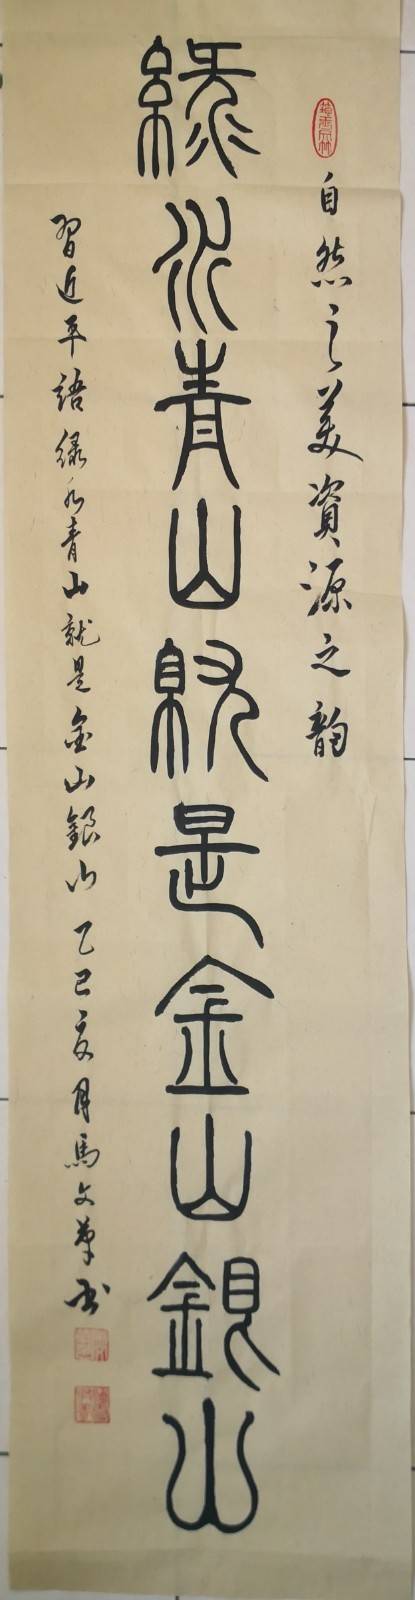 自然之美資源之韵
綠水青山就是金山銀山
習近平語綠水青山就是金山銀山乙巳亥月馬文书